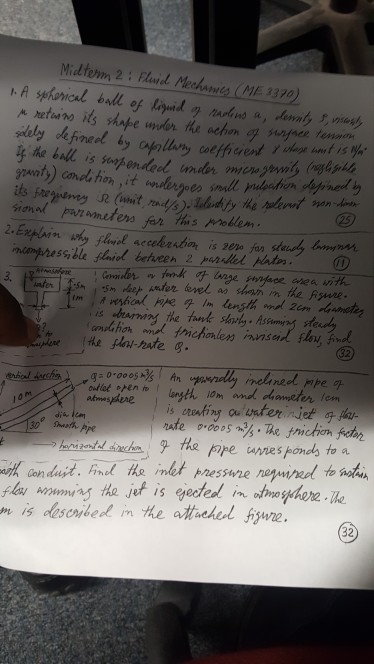 Midterm 2 : Fluid Mechanics (ME 3370)
1. A spherical ball of liquid of radius a, density ρ, viscosity
μ retains its shape under the action of surface tension
solely defined by capillary coefficient γ whose unit is N/m
If the ball is suspended under microgravity (negligible
gravity) condition, it undergoes small pulsation defined by
its frequency Ω (unit, rad/s). Identify the relevant non-dimen-
sional parameters for this problem. (25)
2. Explain why fluid acceleration is zero for steady laminar
incompressible fluid between 2 parallel plates. (11)
3.
atmosphere
water
.5m
1m
Consider a tank of large surface area with
.5m deep water level as shown in the figure.
A vertical pipe of 1m length and 2cm diameter
is draining the tank slowly. Assuming steady
condition and frictionless inviscid flow, find
the flow-rate Q. (32)
vertical direction
10m
30°
dia. 1cm
smooth pipe
horizontal direction
Q = 0.0005 m³/s
outlet open to
atmosphere
An upwardly inclined pipe of
length 10m and diameter 1cm
is creating a water jet of flow-
rate 0.0005 m³/s. The friction factor
of the pipe corresponds to a
conduit. Find the inlet pressure required to sustain
flow assuming the jet is ejected in atmosphere. The
m is described in the attached figure.
(32)